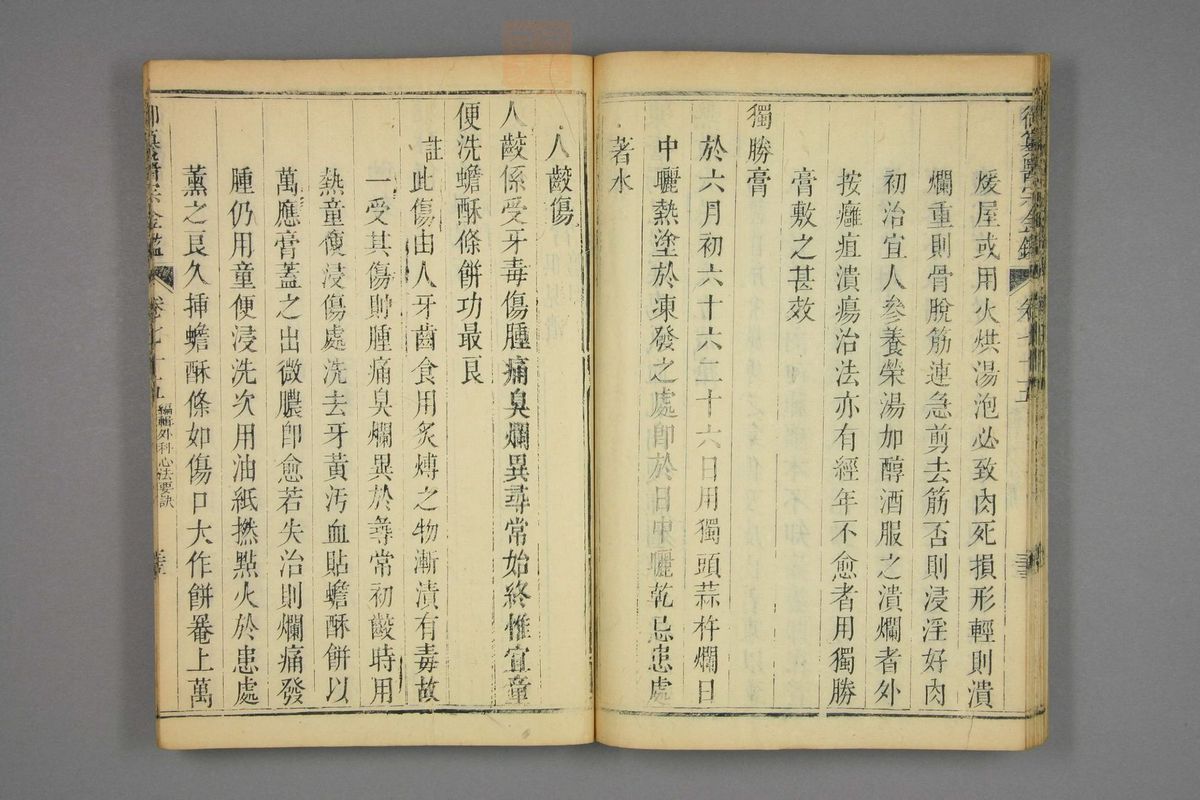 御纂醫宗金鑑 卷七十五
煖屋或用火烘湯泡必致肉死損形輕則潰
爛重則骨脫筋連急剪去筋否則浸淫好肉
初治宜人參養榮湯加醇酒服之潰爛者外
按癰疽潰瘍治法亦有經年不愈者用獨勝
膏敷之甚效
獨勝膏
於六月初六十六二十六日用獨頭蒜杵爛日
中曬熱塗於凍發之處卽於日中曬乾忌患處
著水
人齩傷
人齩係受牙毒傷腫痛臭爛異尋常始終惟宜童
便洗蟾酥條餅功最良
註此傷由人牙齒食用炙煿之物漸漬有毒故
一受其傷貯腫痛臭爛異於尋常初齩時用
熱童便浸傷處洗去牙黃汚血貼蟾酥餅以
萬應膏蓋之出微膿卽愈若失治則爛痛發
腫仍用童便浸洗次用油紙撚點火於患處
薰之良久插蟾酥條如傷口大作餅罨上萬
御纂醫宗金鑑 卷七十五 編輯外科心法要訣